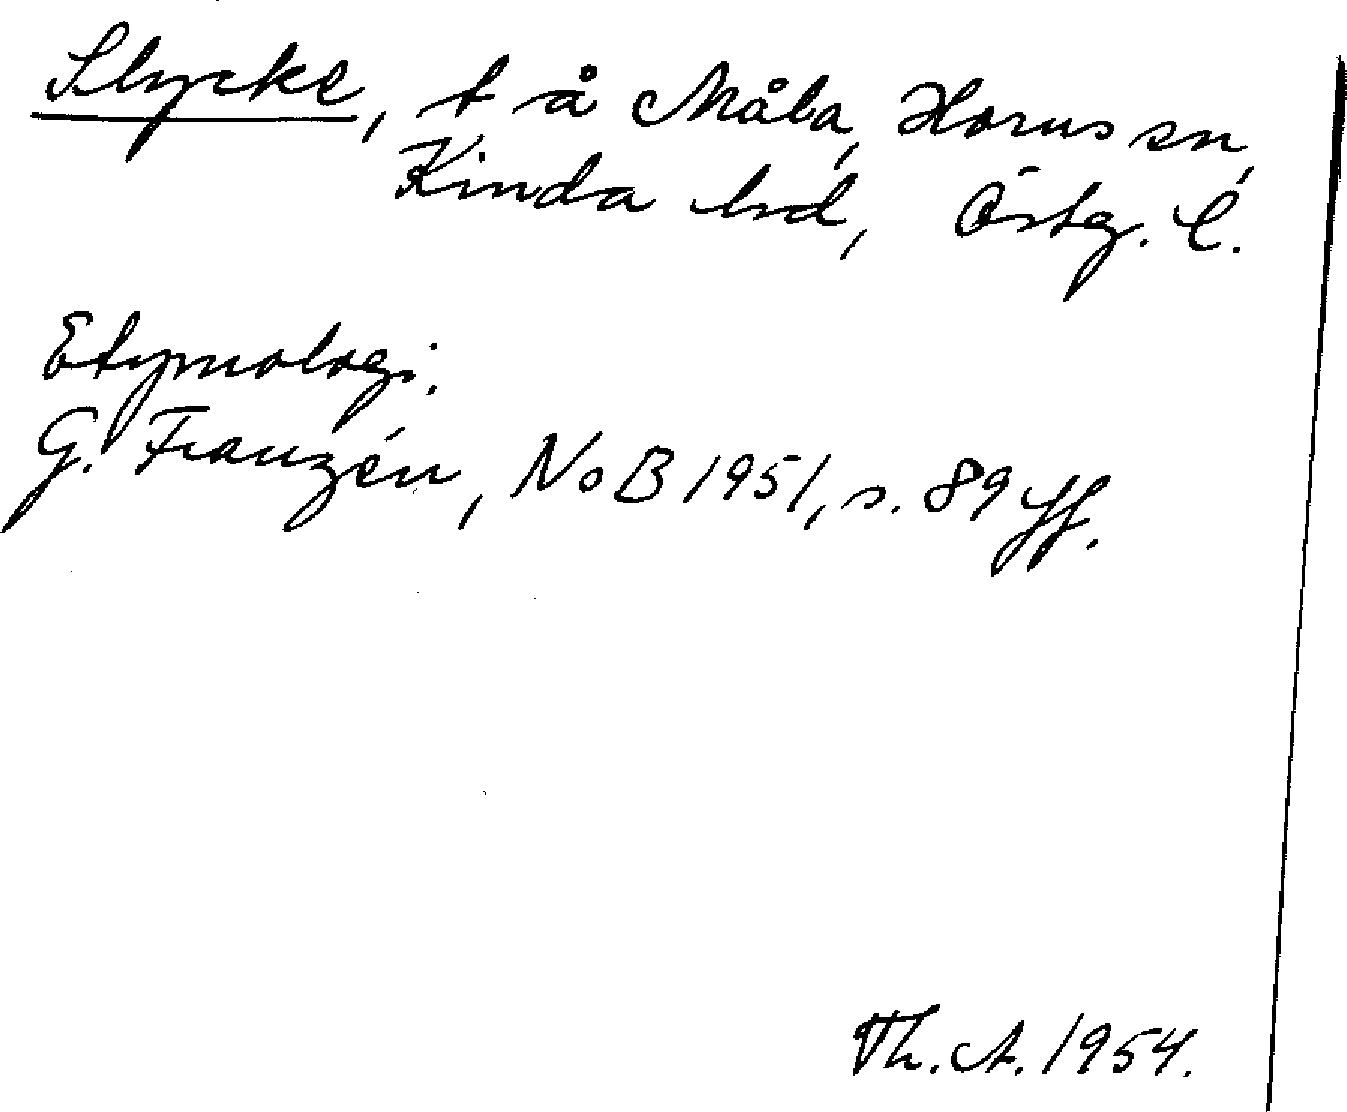 Slycke, t å Måla, Horns sn,
Kinda hd, Östg. l.
Etymologi.
G. Franzén, NoB 1951, s. 89 ff.
Th. A. 1954.